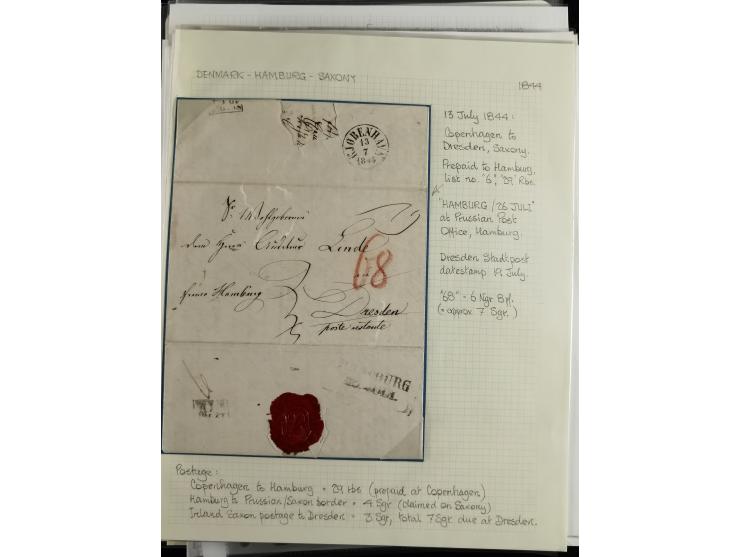 DENMARK - HAMBURG - SAXONY
1844
13 July 1844:
Copenhagen to
Dresden, Saxony.
Prepaid to Hamburg,
list no. "6", "29" Rbs.
"HAMBURG / 26 JULI"
at Prussian Post
Office, Hamburg.
Dresden Stadtpost
datestamp 19 July.
"68" = 6 Ngr 8 pf.
(= approx 7 Sgr.)
KJØBENHAVN
13
7
1844
Linde
68
franco Hamburg
Dresden
poste restante
Postage:
Copenhagen to Hamburg = 29 rbs (prepaid at Copenhagen)
Hamburg to Prussian/Saxon border = 4 Sgr (claimed on Saxony)
Inland Saxon postage to Dresden = 3 Sgr, total 7 Sgr due at Dresden.